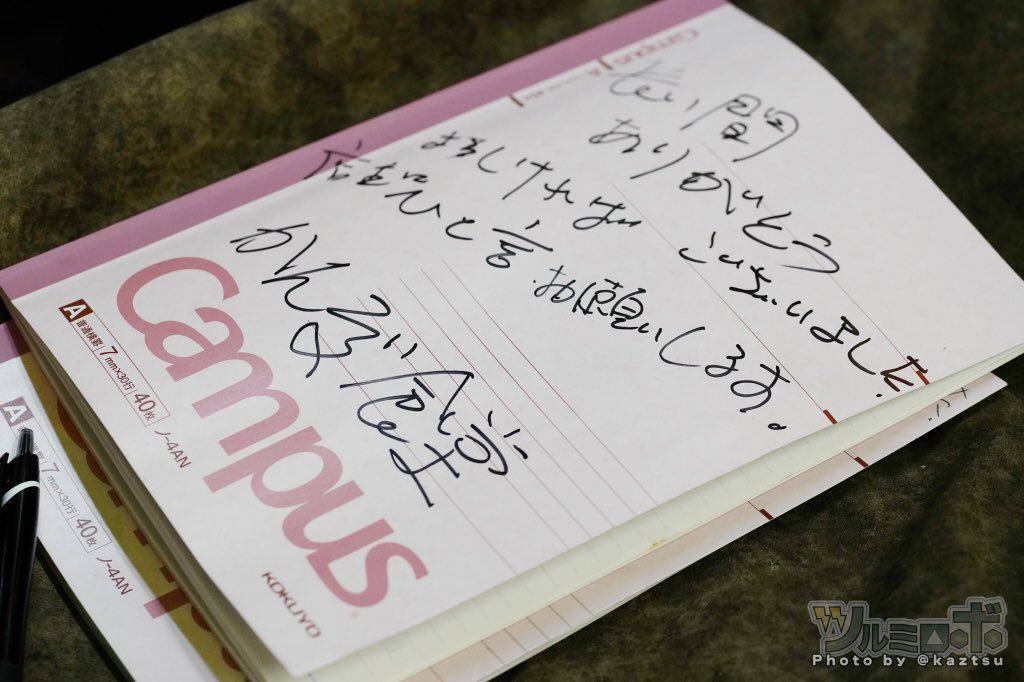 長い間
ありがとうございました.
よろしければ
ひと言お願いします。
かんだ食堂
Campus
A 普通横罫 7mm×30行 40枚 ノ-4AN
KOKUYO
Campus
A 普通横罫 7mm×30行 40枚 ノ-4AN
ツルミロボ
Photo by @kaztsu